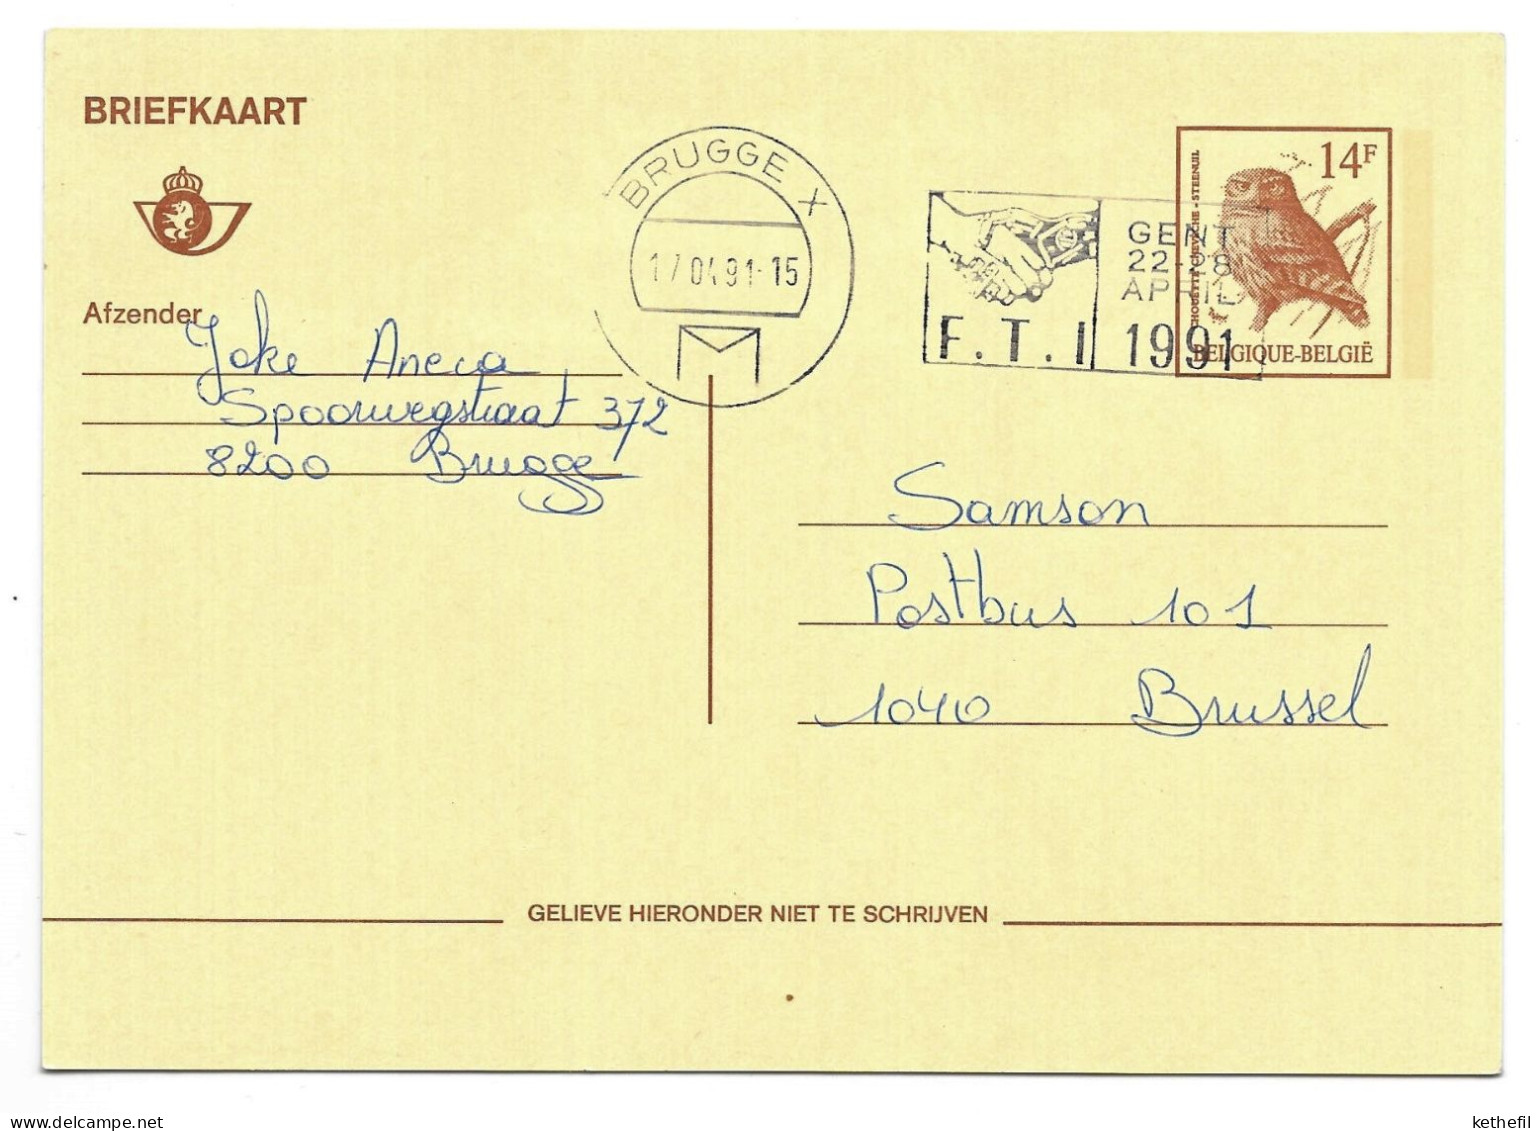 BRIEFKAART
BRUGGE X
17 04 91-15
GENT
22-28
APRIL
F.T.I 1991
14F
CHOUETTE CHEVECHE - STEENUIL
BELGIQUE-BELGIË
Afzender
Joke Aneca
Spoorwegstraat 372
8200 Brugge
Samson
Postbus 101
1040 Brussel
GELIEVE HIERONDER NIET TE SCHRIJVEN
kethefil